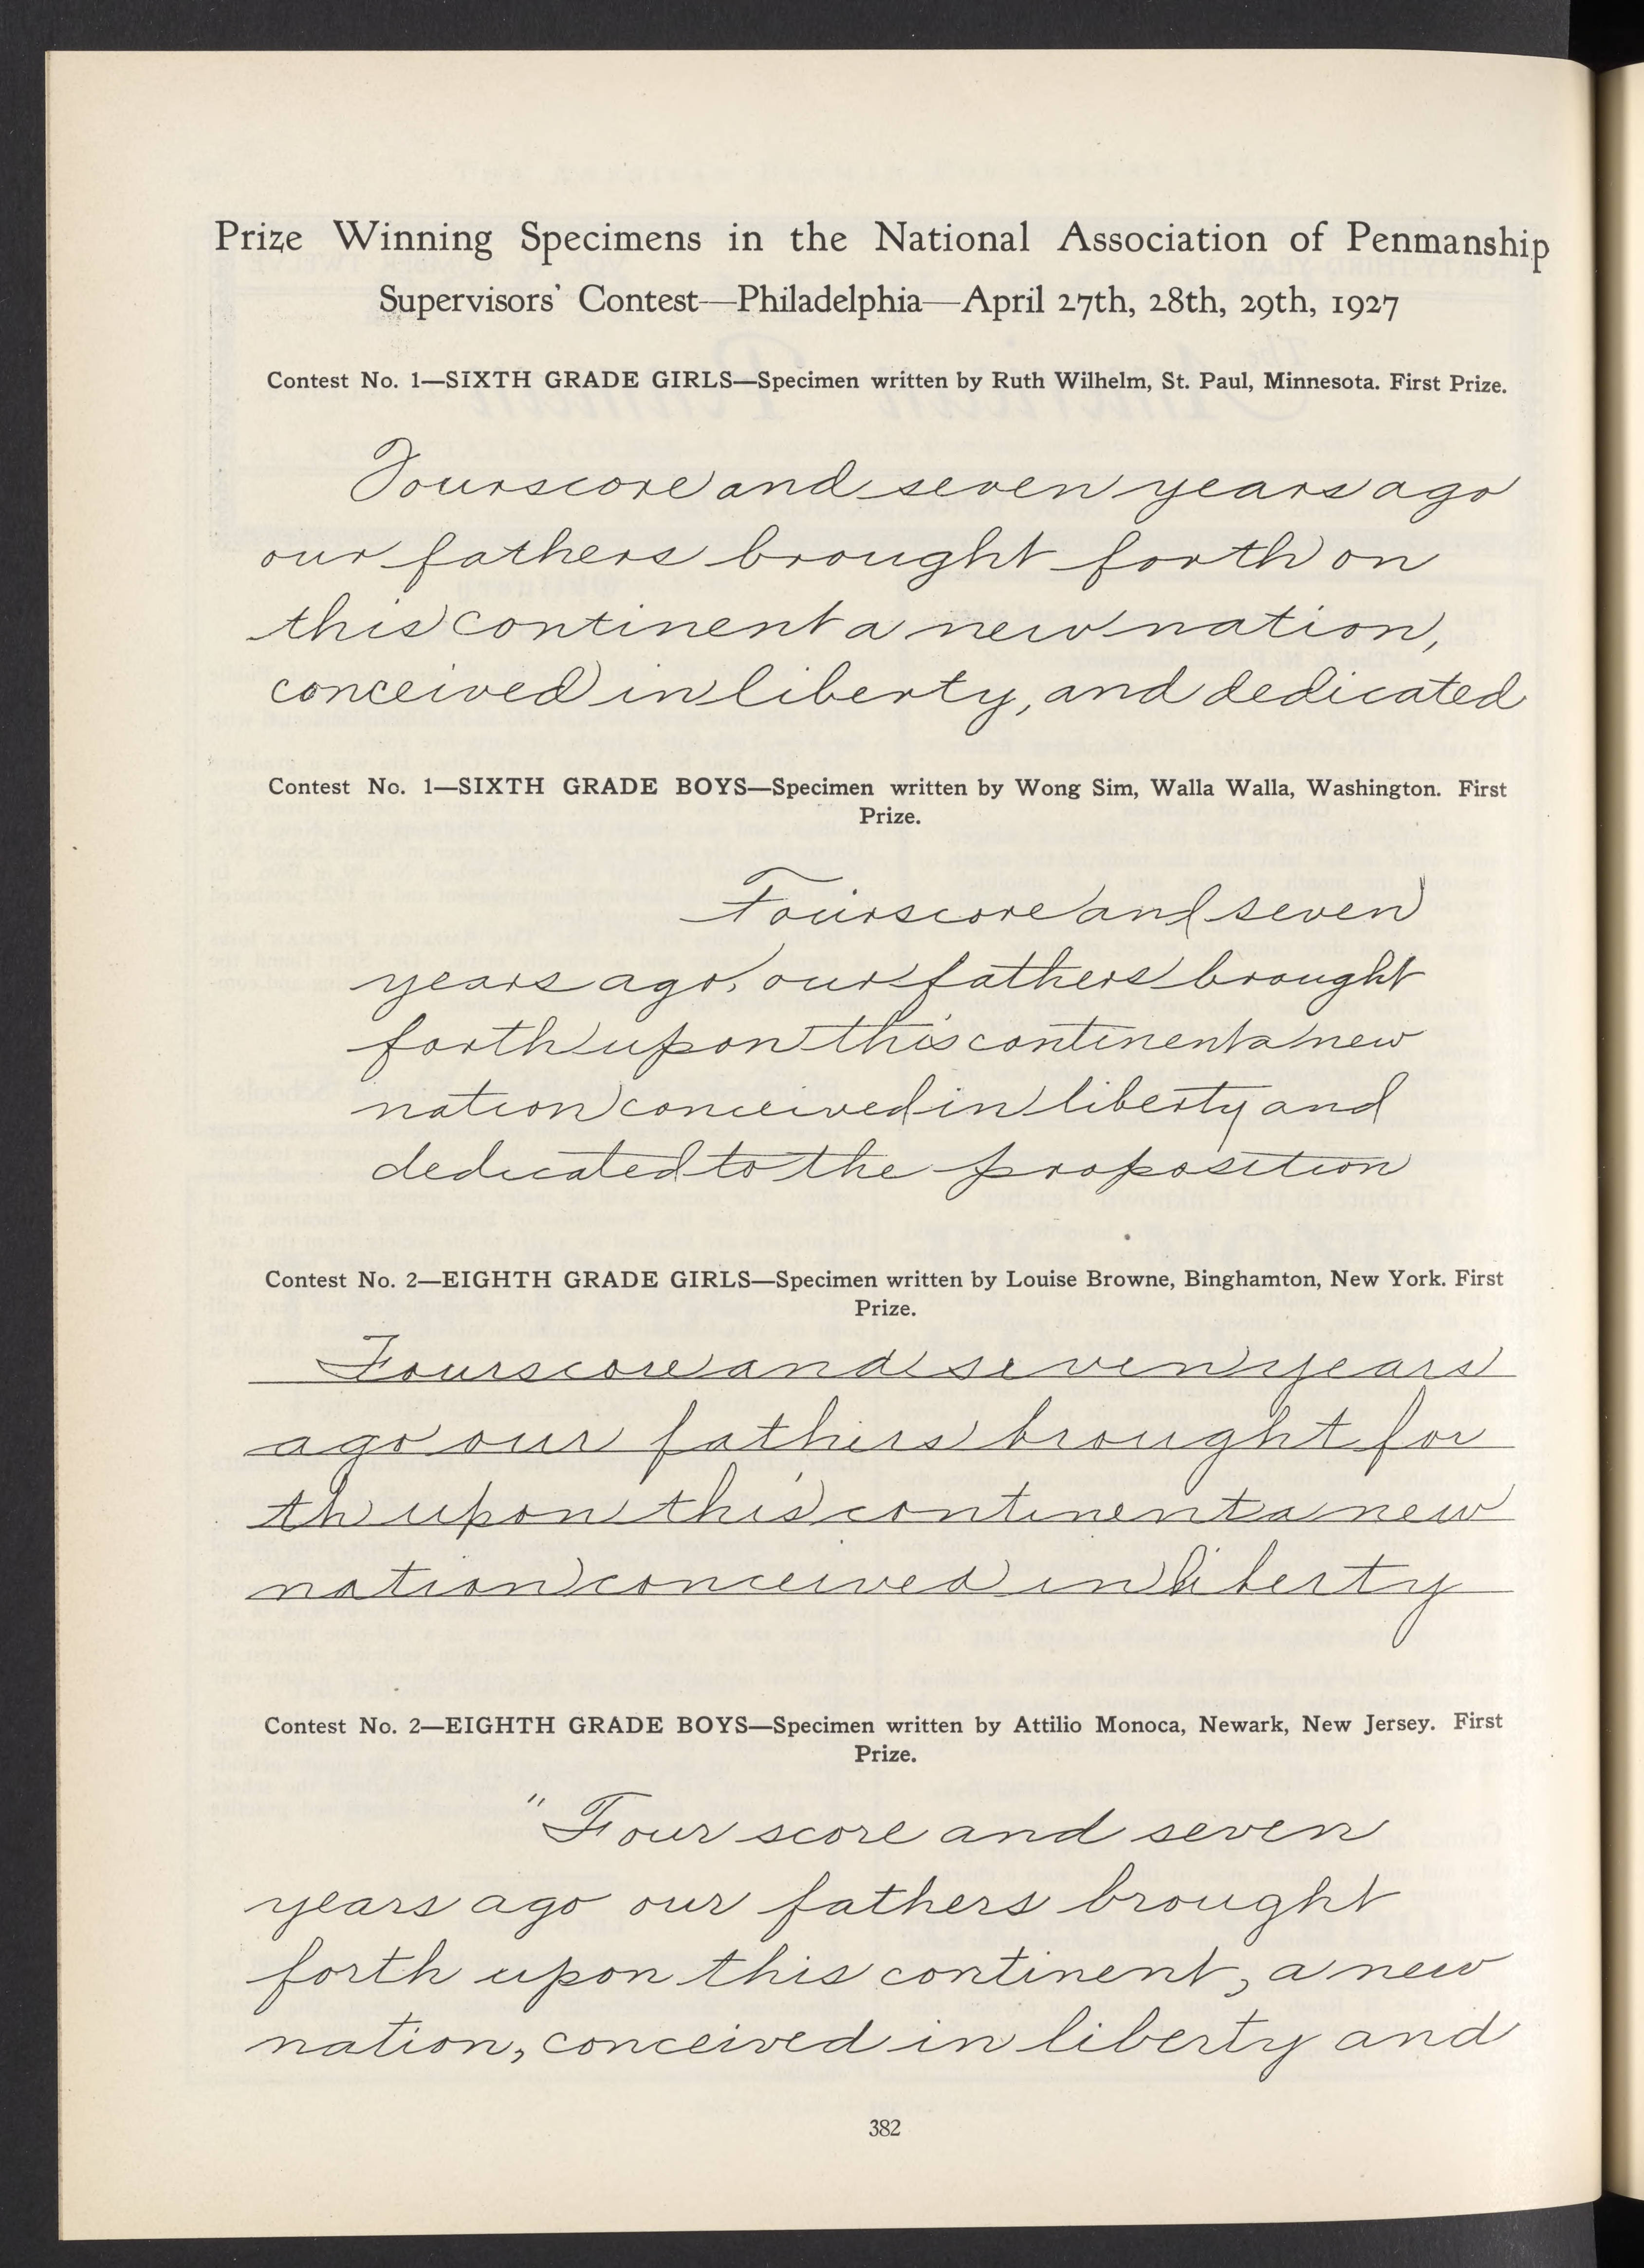 Prize Winning Specimens in the National Association of Penmanship
Supervisors' Contest—Philadelphia—April 27th, 28th, 29th, 1927
Contest No. 1—SIXTH GRADE GIRLS—Specimen written by Ruth Wilhelm, St. Paul, Minnesota. First Prize.
Fourscore and seven years ago
our fathers brought forth on
this continent a new nation,
conceived in liberty, and dedicated
Contest No. 1—SIXTH GRADE BOYS—Specimen written by Wong Sim, Walla Walla, Washington. First
Prize.
Fourscore and seven
years ago, our fathers brought
forth upon this continent a new
nation conceived in liberty and
dedicated to the proposition
Contest No. 2—EIGHTH GRADE GIRLS—Specimen written by Louise Browne, Binghamton, New York. First
Prize.
Fourscore and seven years
ago our fathers brought for
th upon this continent a new
nation conceived in liberty
Contest No. 2—EIGHTH GRADE BOYS—Specimen written by Attilio Monoca, Newark, New Jersey. First
Prize.
"Four score and seven
years ago our fathers brought
forth upon this continent, a new
nation, conceived in liberty and
382